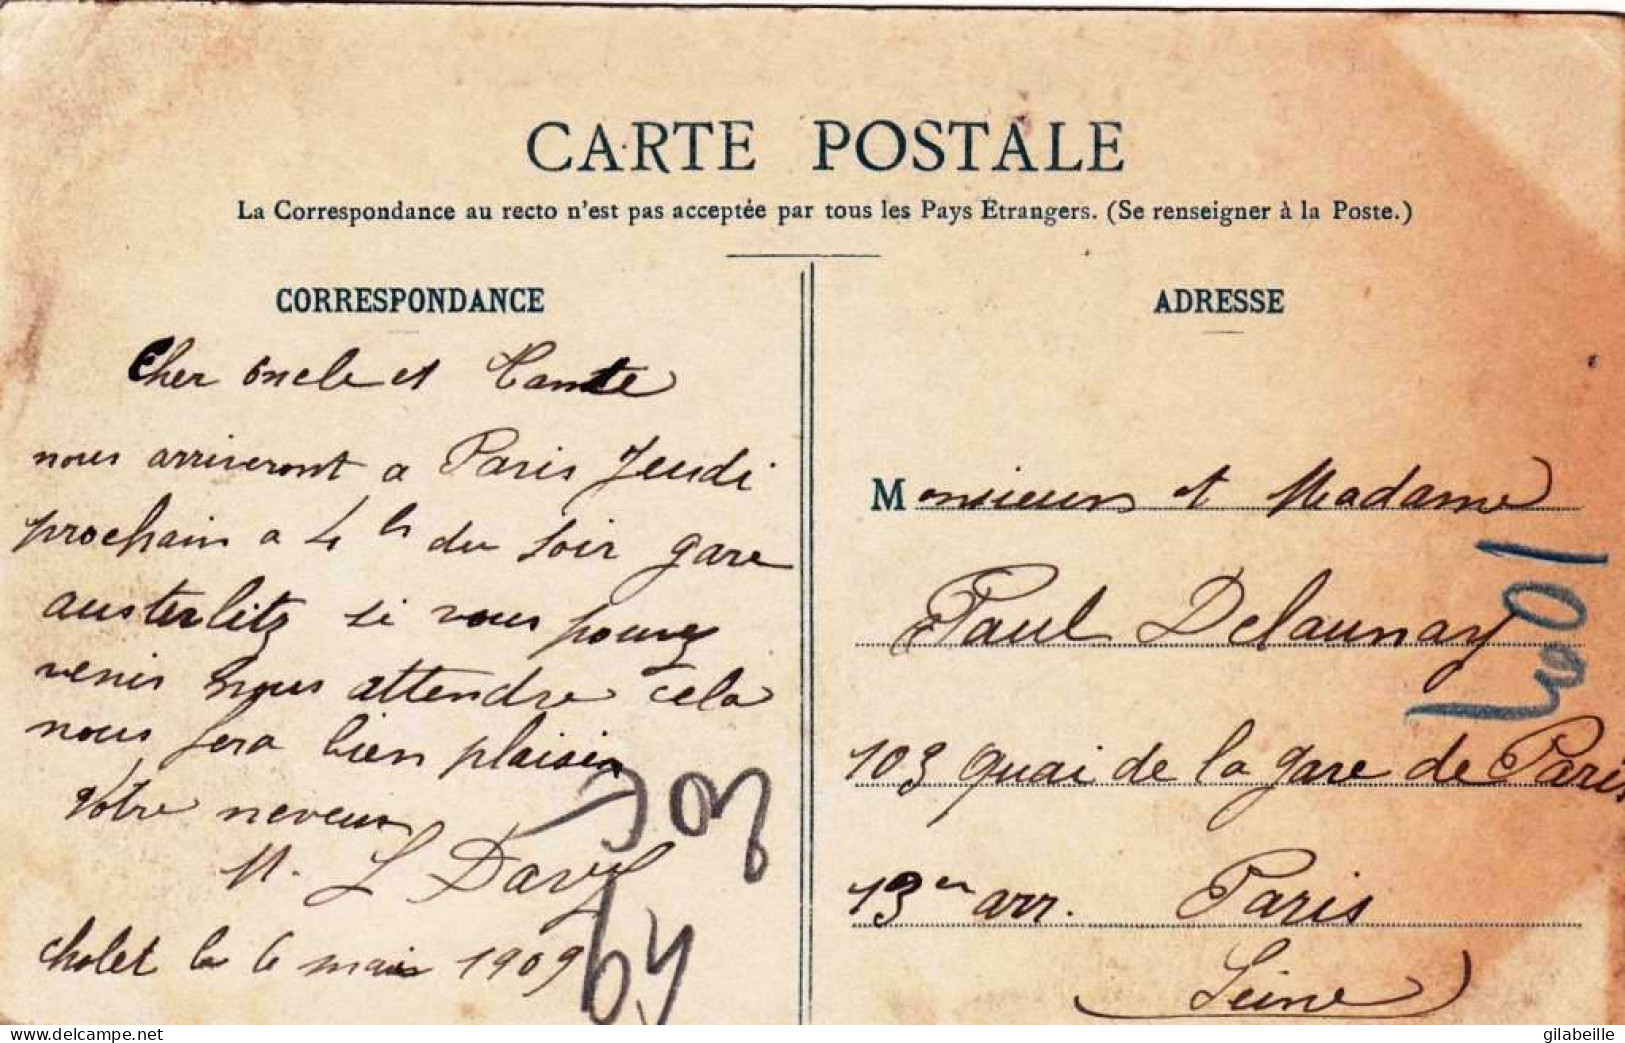 CARTE POSTALE
La Correspondance au recto n'est pas acceptée par tous les Pays Étrangers. (Se renseigner à la Poste.)
CORRESPONDANCE
Cher oncle et Tante
nous arriveront a Paris Jeudi
prochain a 4 h du soir gare
austerlitz si vous pouvez
venir nous attendre cela
nous fera bien plaisir
Votre neveux
M. L Davy
cholet le 6 mais 1909
ADRESSE
Monsieurs et Madame
Paul Delaunay
103 quai de la gare de Paris
13er arr. Paris
Seine
1001
www.delcampe.net
gilabeille